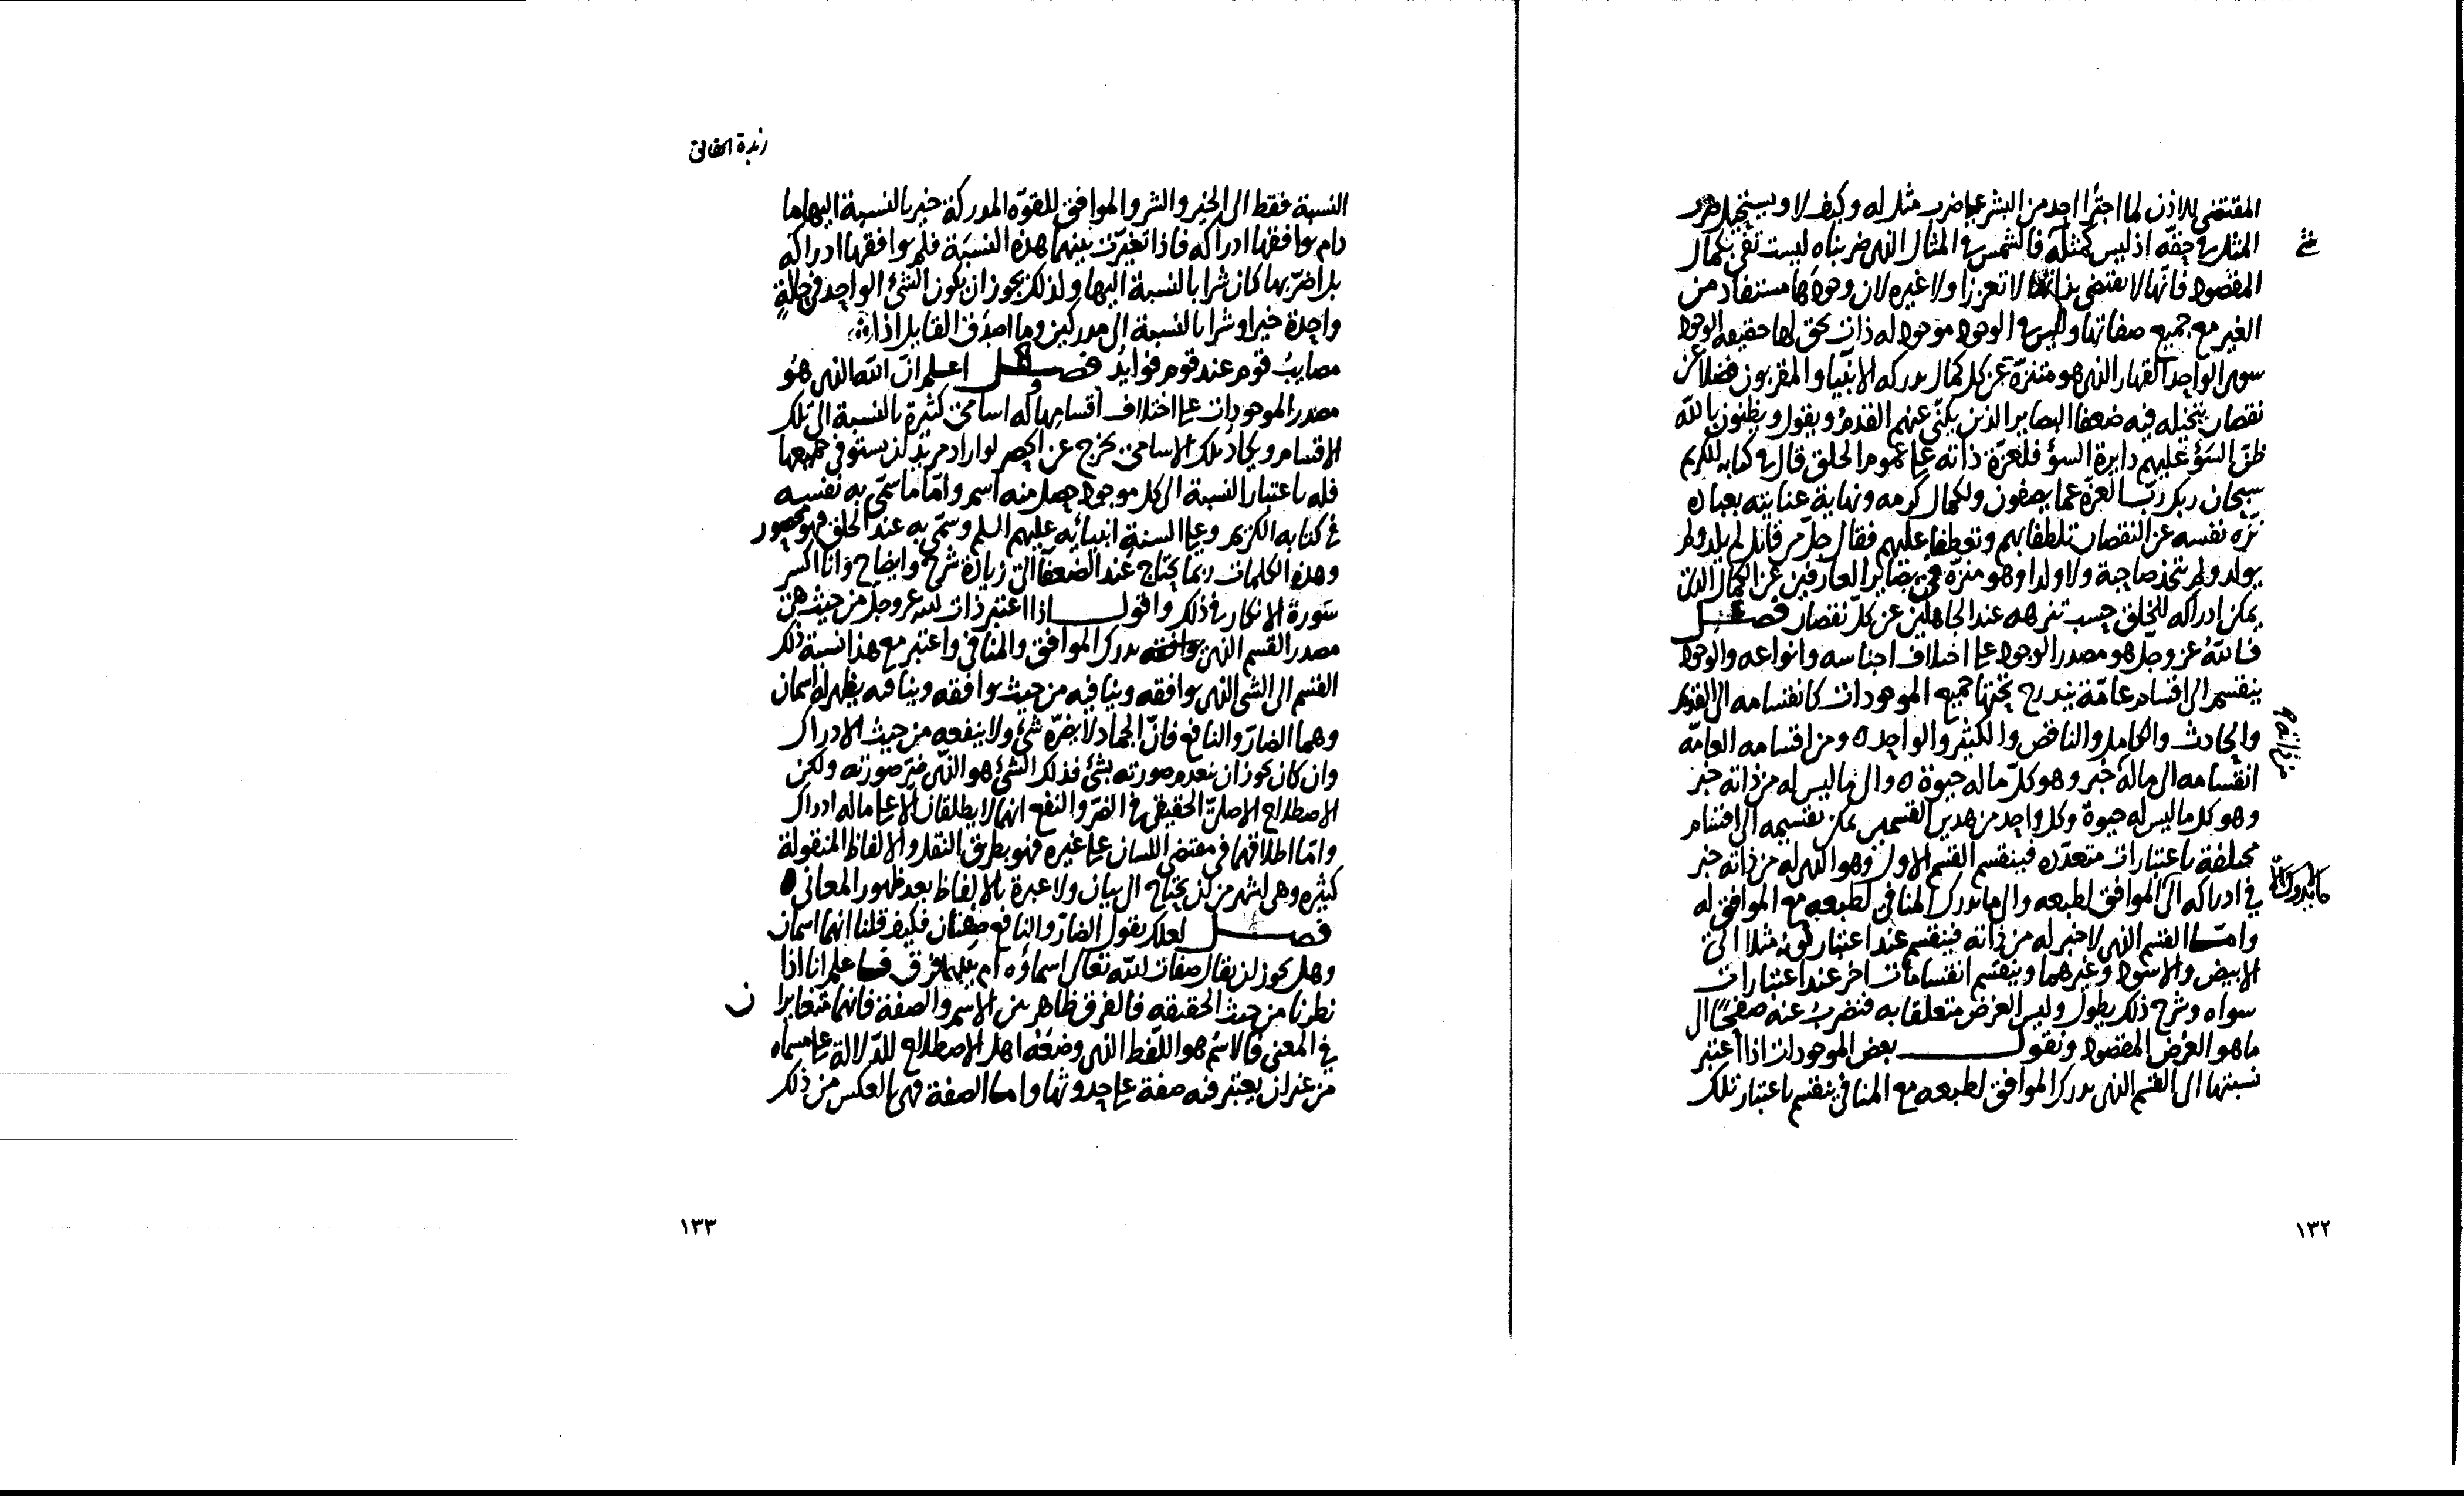 المقتضى للاذن لما اجترأ احد من البشر على ضرب مثل له وكيف لا ويستحيل ضرب
المثل فى حقه اذ ليس كمثله فالشمس فى المثال الذى ضربناه ليست تفى بكمال
المقصود فانها لا تقتضى بذاتها لا تعززا ولا غيره لان وجودها مستفاد من
الغير مع جميع صفاتها وليس فى الوجود موجود له ذات تحق لها حقيقة الوجود
سوى الواحد القهار الذى هو متنزه عن كل كمال يدركه الانبيا والمقربون فضلا عن
نقصان يتخيله فيه ضعفا البصاير الذين يكنى عنهم القدم ويقول ويظنون بالله
ظن السوء عليهم دايرة السوء فلعزة ذاته على عموم الخلق قال فى كتابه الكريم
سبحان ربك رب العزة عما يصفون ولكمال كرمه ونهاية عنايته بعباده
نزه نفسه عن النقصان تلطفا بهم وتعطفا عليهم فقال جل من قائل لم يلد ولم
يولد ولم يتخذ صاحبة ولا ولدا وهو منزه فى بصاير العارفين عن الكمال الذى
يمكن ادراكه للخلق حسب تنزهه عند الجاهلين عن كل نقصان فصل
فالله عز وجل هو مصدر الوجود على اختلاف اجناسه وانواعه والوجود
ينقسم الى اقسام عامة يندرج تحتها جميع الموجودات كانقسامه الى القديم
والحادث والكامل والناقص والكثير والواحد ه ومن اقسامه العامة
من ذاته
انقسامه الى ما له خبر وهو كل ما له حيوة ه والى ما ليس له من ذاته خبر
وهو كل ما ليس له حيوة وكل واحد من هذين القسمين يمكن تقسيمه الى اقسام
مختلفة باعتبارات متعدده فينقسم القسم الاول وهو الذى له من ذاته خبر
فى ادراكه الى الموافق لطبعه والى ما يدرك المنافى لطبعه مع الموافق له
واما القسم الذى لا خبر له من ذاته فينقسم عند اعتبار لونه مثلا الى
الابيض والاسود وغيرهما وينقسم انقسامات اخر عند اعتبارات
سواه وشرح ذلك يطول وليس الغرض متعلقا به فنضرب عنه صفحا الى
ما هو الغرض المقصود ونقول بعض الموجودات اذا اعتبر
نسبتها الى القسم الذى يدرك الموافق لطبعه مع المنافى ينقسم باعتبار تلك
١٣٢
زبدة الحقائق
النسبة فقط الى الخير والشر والموافق للقوة المدركة خير بالنسبة اليها ما
دام يوافقها ادراكه فاذا تغيرت بينهما هذه النسبة فلم يوافقها ادراكه
بل اضر بها كان شرا بالنسبة اليها ولذلك يجوز ان يكون الشئ الواحد فى حالة
واحدة خيرا وشرا بالنسبة الى مدركين وما اصدق القايل اذا
مصايب قوم عند قوم فوايد فصل اعلم ان الله الذى هو
مصدر الموجودات على اختلاف اقسامها له اسامى كثيرة بالنسبة الى تلك
الاقسام ويكاد تلك الاسامى يخرج عن الحصر لو اراد مريد ان يستوفى جميعها
فله باعتبار النسبة الى كل موجود حصل منه اسم واما ما سمى به نفسه
فى كتابه الكريم وعلى السنة انبيائه عليهم السلم وسمى به عند الخلق فهو محصور
وهذه الكلمات ربما يحتاج عند الضعفا الى زيادة شرح وايضاح وانا اكسر
سورة الانكار فى ذلك واقول اذا اعتبر ذات الله عز وجل من حيث هى
مصدر القسم الذى يدرك الموافق والمنافى واعتبر مع هذا نسبة ذلك
القسم الى الشئ الذى يوافقه وينافيه من حيث يوافقه وينافيه يظهر له اسمان
وهما الضار والنافع فان الجماد لا يضره شئ ولا ينفعه من حيث الادراك
وان كان يجوز ان ينعدم صورته بشئ فذلك الشئ هو الذى صورته ولكن
الاصطلاح الاصلى الحقيقى فى الضر والنفع انهما لا يطلقان الا على ما له ادراك
واما اطلاقهما فى مقتضى اللسان على غيره فهو بطريق النقل والالفاظ المنقولة
كثيره وهى اشهر من ان يحتاج الى بيان ولا عبرة بالالفاظ بعد ظهور المعانى
فصل لعلك تقول الضار والنافع صفتان فكيف قلنا انهما اسمان
وهل يجوز ان يقال صفات الله تعالى اسماؤه ام بينهما فرق فاعلم انا اذا
نظرنا من حيث الحقيقه فالفرق ظاهر بين الاسم والصفة فانهما متغايرا
ن
فى المعنى فالاسم هو اللفظ الذى وضعه اهل الاصطلاح للدلالة على مسماه
من غير ان يعتبر فيه صفة على حدوثها واما الصفة فهى بالعكس من ذلك
١٣٣